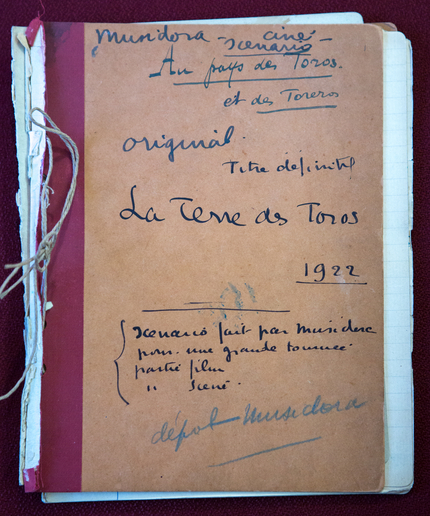 Musidora - ciné-
scenario
Au pays des Toros.
et des Toreros
original.
Titre définitif
La Terre des Toros
1922
scenario fait par Musidora
pour une grande tournée
partie film
" scène.
dépot Musidora